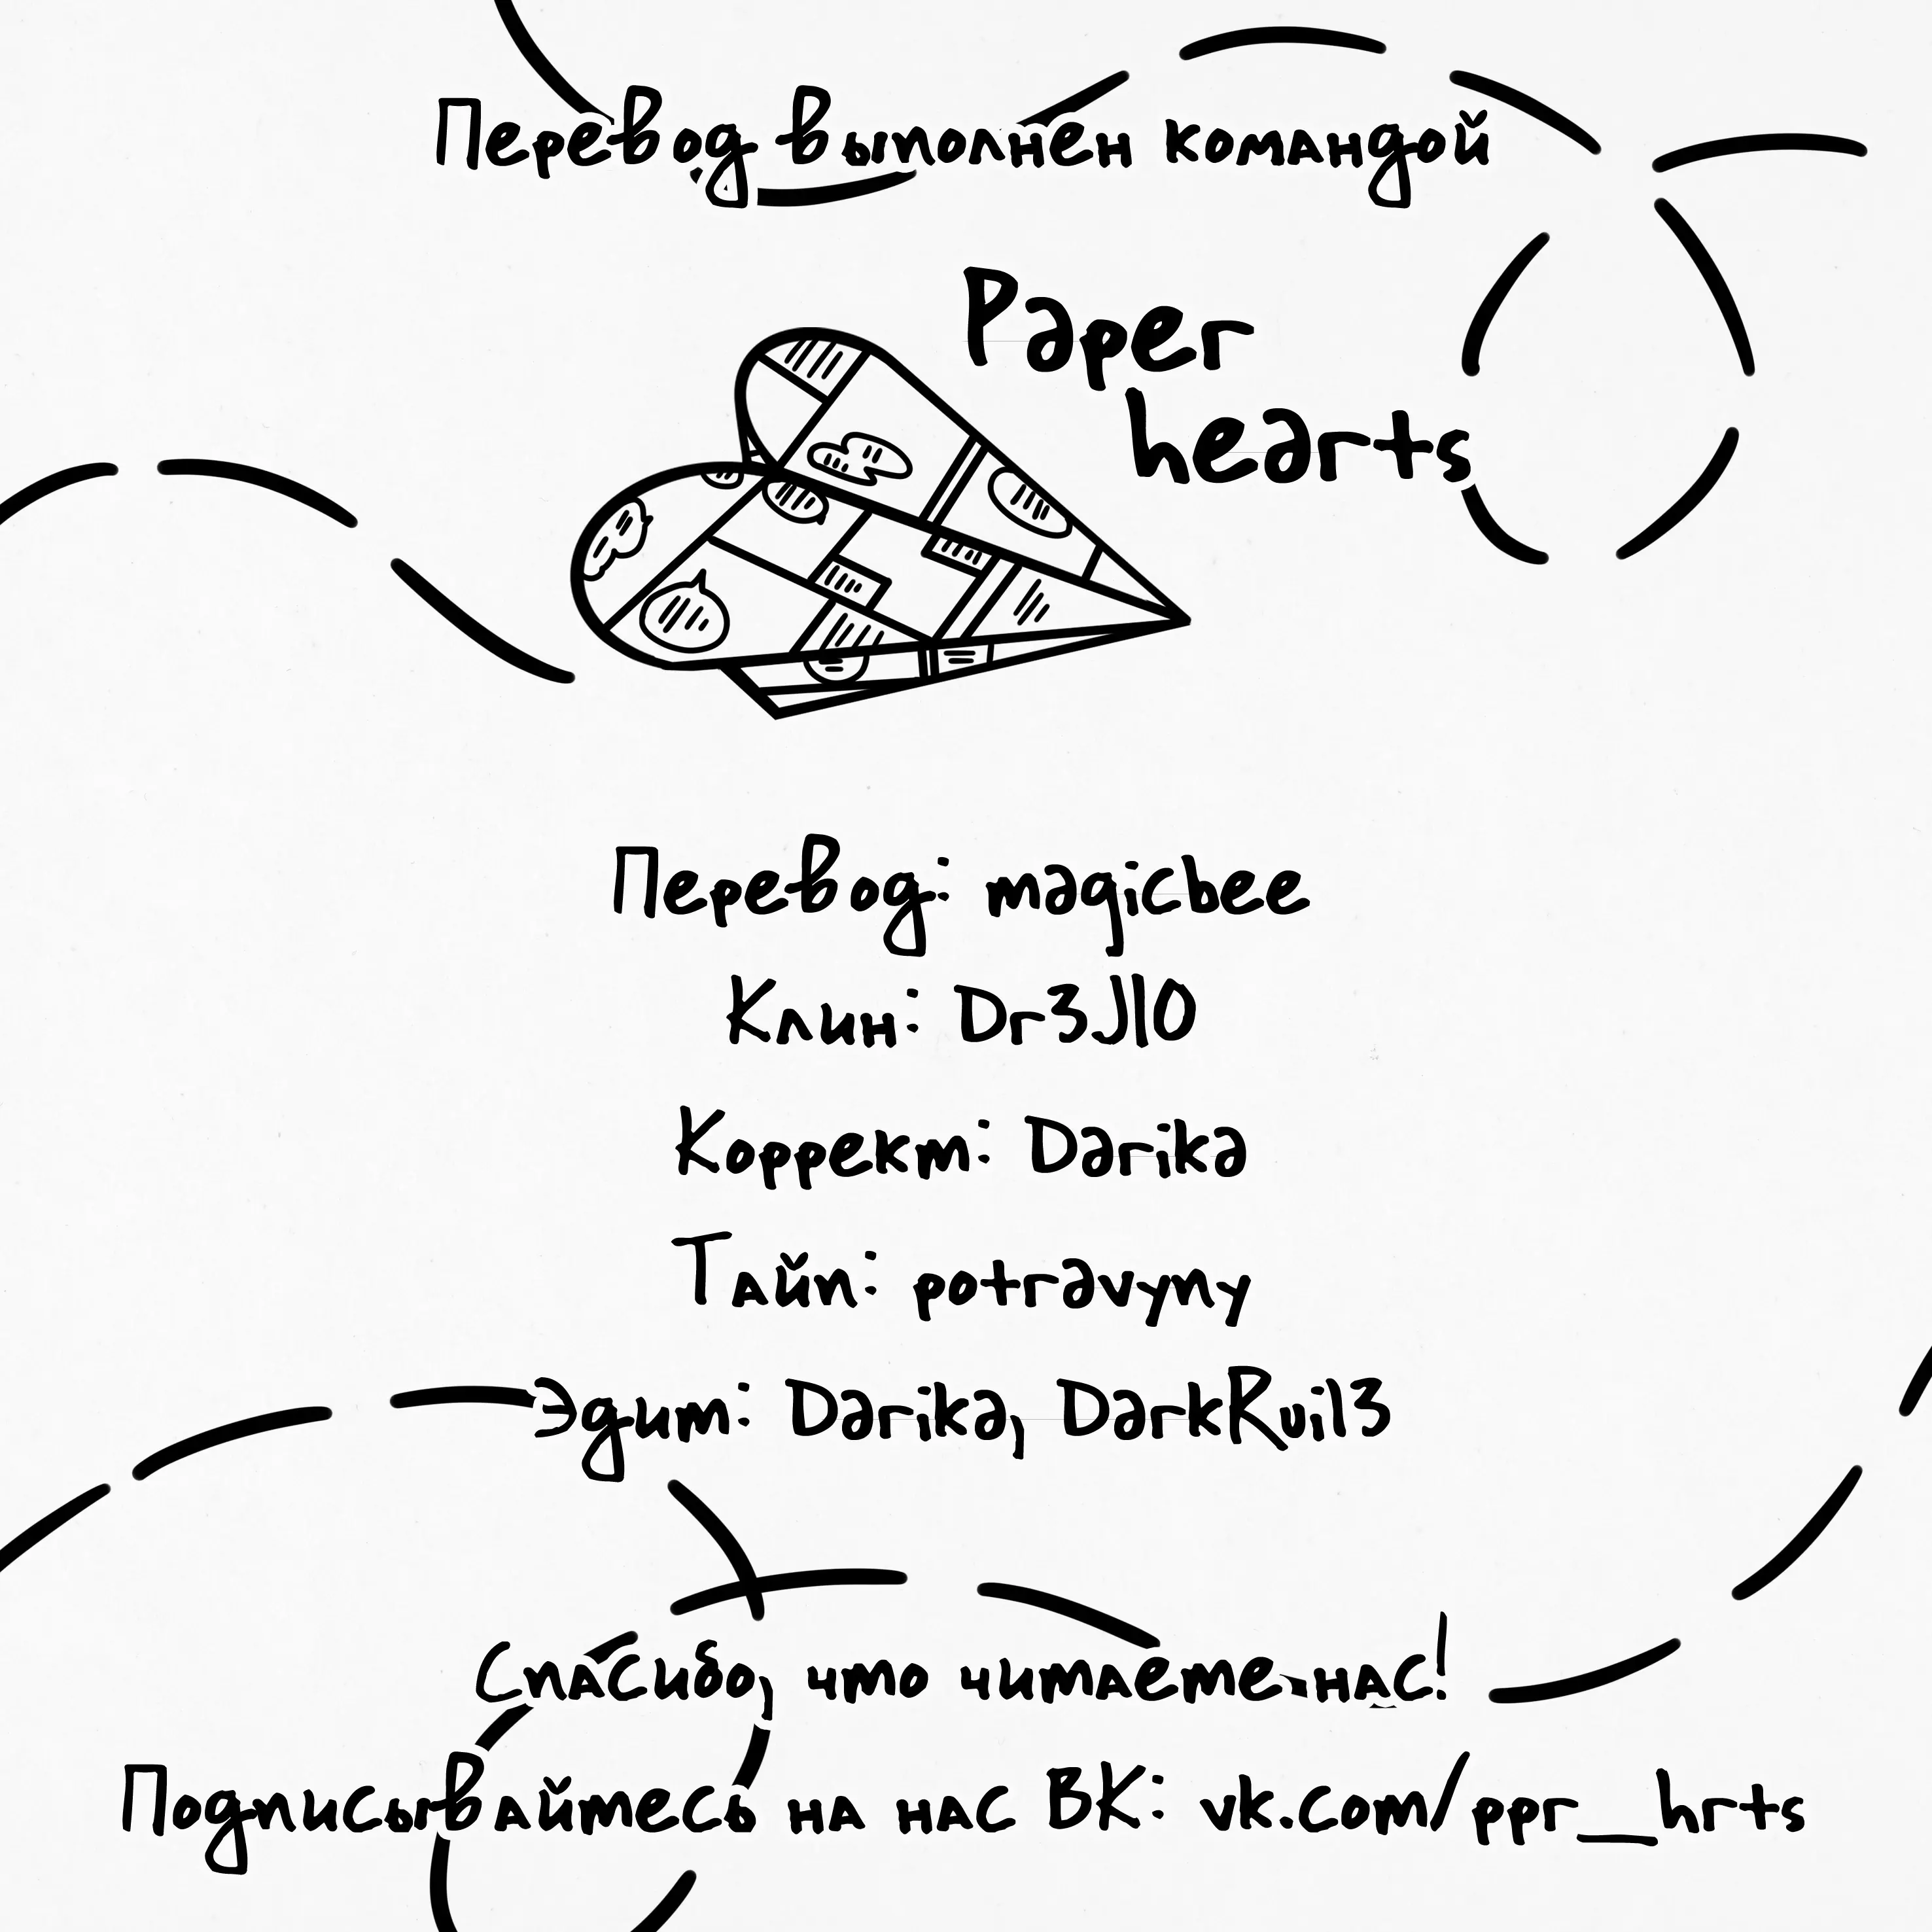 Перевод выполнен командой
Paper
hearts
Перевод: magicbee
Клин: Dr3JI0
Коррект: Darika
Тайп: potravyny
Эдит: Darika, DarkRuil3
Спасибо, что читаете нас!
Подписывайтесь на нас ВК: vk.com/ppr__hrts